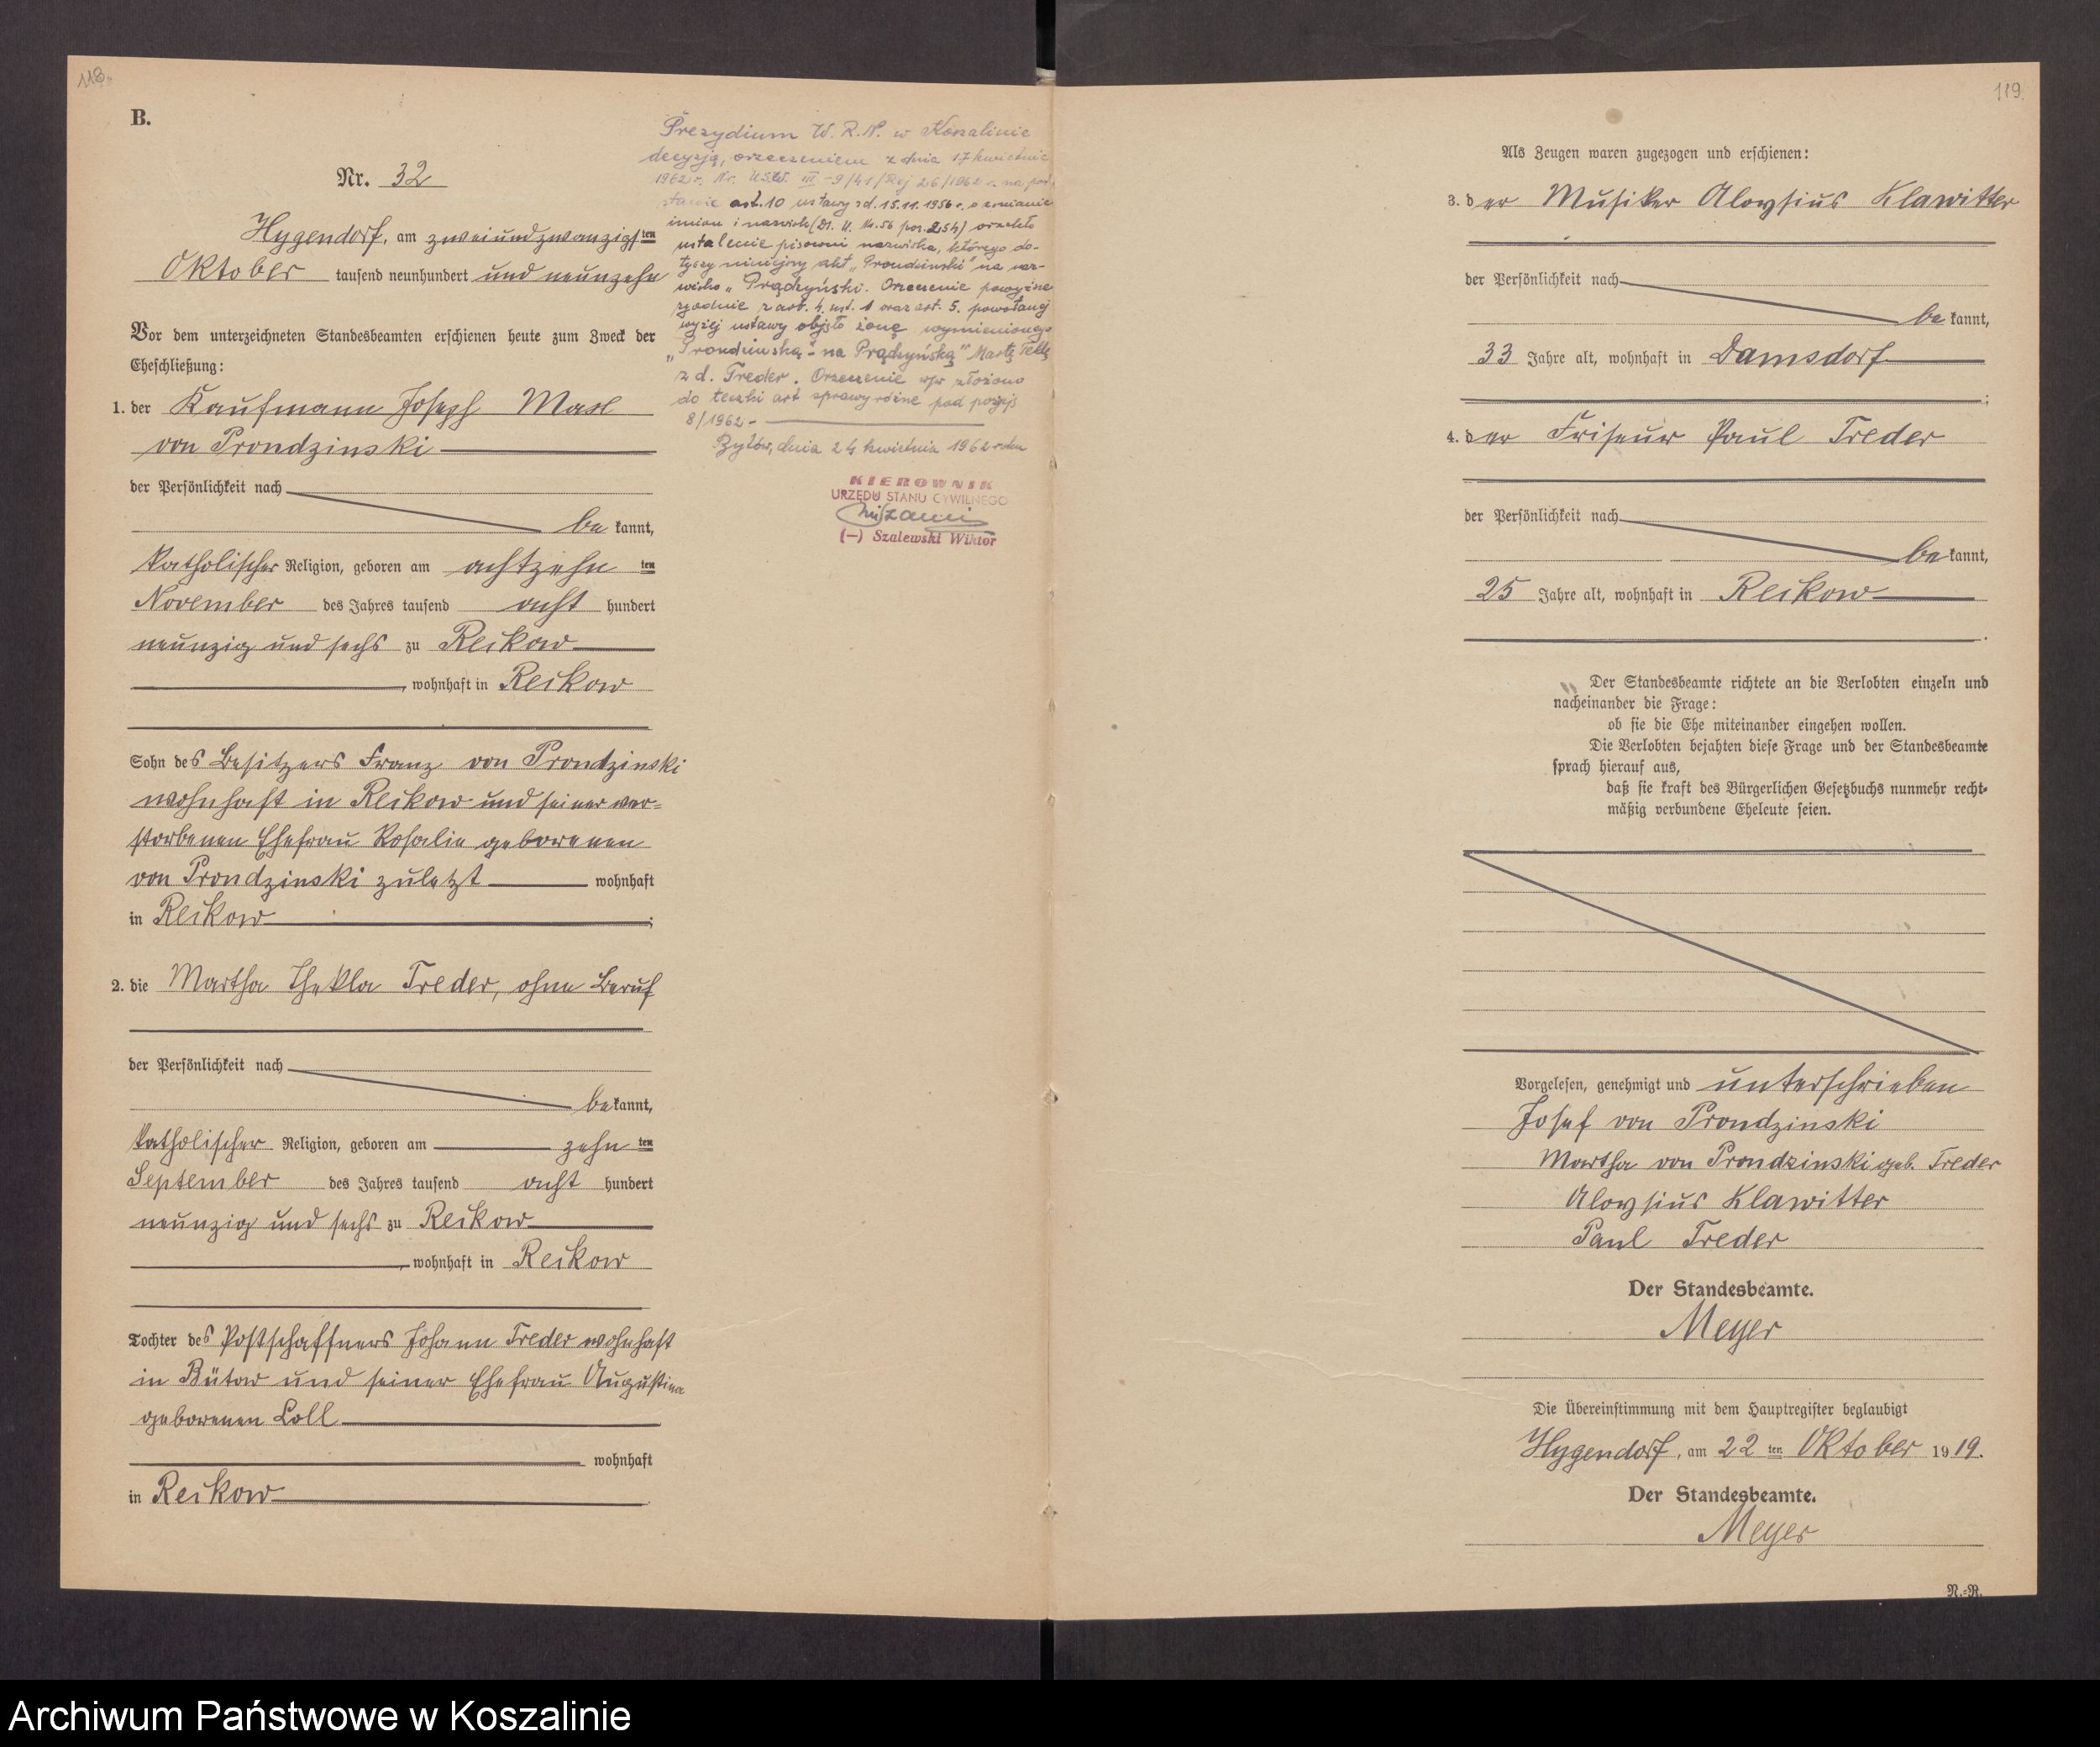 118.
B.
Nr. 32
Hygendorf, am zweiundzwanzigsten
Oktober tausend neunhundert und neunzehn
Vor dem unterzeichneten Standesbeamten erschienen heute zum Zweck der
Eheschließung:
1. der Kaufmann Joseph Max
von Prondzinski
der Persönlichkeit nach
be kannt,
katholischer Religion, geboren am achtzehn ten
November des Jahres tausend acht hundert
neunzig und sechs zu Reckow
, wohnhaft in Reckow
Sohn des Besitzers Franz von Prondzinski
wohnhaft in Reckow und seiner ver=
storbenen Ehefrau Rosalie geborenen
von Prondzinski zuletzt wohnhaft
in Reckow ;
2. die Martha Thekla Treder, ohne Beruf
der Persönlichkeit nach
be kannt,
katholischer Religion, geboren am zehn ten
September des Jahres tausend acht hundert
neunzig und sechs zu Reckow
, wohnhaft in Reckow
Tochter des Postschaffners Johann Treder wohnhaft
in Bütow und seiner Ehefrau Augustina
geborenen Loll
wohnhaft
in Reckow .
Prezydium W.R.N. w Koszalinie
decyzją, orzeczeniem z dnia 17 kwietnia
1962 r. Nr. USW. III -9/41/Rej 26/1962 r. na pod
stawie art. 10 ustawy z d. 15.11.1956 r. o zmianie
imion i nazwisk (Dz. U. Nr. 56 poz. 254) orzekło
ustalenie pisowni nazwiska, którego do-
tyczy niniejszy akt „Prondzinski" na naz-
wisko „Prądzyński. Orzeczenie powyższe
zgodnie z art. 4 ust. 1 oraz art. 5. powołanej
wyżej ustawy objęło żonę wymienionego
„Prondzinską" na Prądzyńską" Martę Teklę
z d. Treder. Orzeczenie w/w złożono
do teczki akt sprawy różne pod pozycją
8/1962 -
Bytów, dnia 24 kwietnia 1962 roku
KIEROWNIK
URZĘDU STANU CYWILNEGO
(—) Szalewski Wiktor
119
Als Zeugen waren zugezogen und erschienen:
3. der Musiker Aloysius Klawitter
der Persönlichkeit nach
be kannt,
33 Jahre alt, wohnhaft in Damsdorf
;
4. der Friseur Paul Treder
der Persönlichkeit nach
be kannt,
25 Jahre alt, wohnhaft in Reckow
.
Der Standesbeamte richtete an die Verlobten einzeln und
nacheinander die Frage:
ob sie die Ehe miteinander eingehen wollen.
Die Verlobten bejahten diese Frage und der Standesbeamte
sprach hierauf aus,
daß sie kraft des Bürgerlichen Gesetzbuchs nunmehr recht-
mäßig verbundene Eheleute seien.
Vorgelesen, genehmigt und unterschrieben
Josef von Prondzinski
Martha von Prondzinski geb. Treder
Aloysius Klawitter
Paul Treder
Der Standesbeamte.
Meyer
Die Übereinstimmung mit dem Hauptregister beglaubigt
Hygendorf, am 22 ten Oktober 1919.
Der Standesbeamte.
Meyer
N.-R.
Archiwum Państwowe w Koszalinie